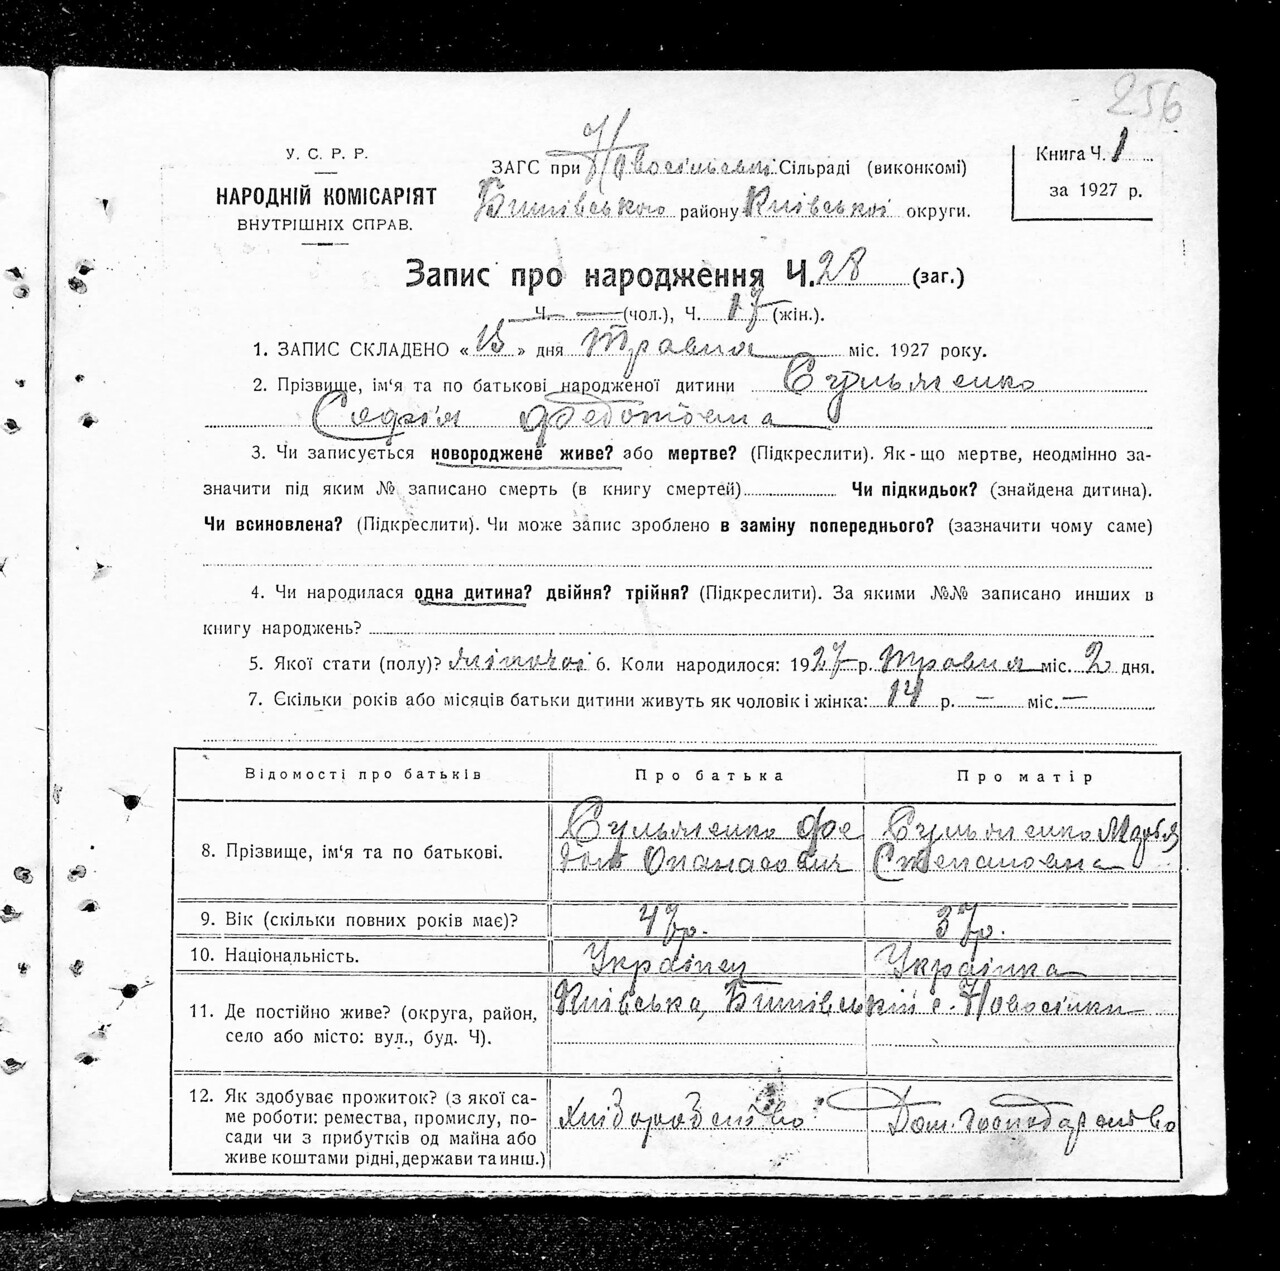 256
У. С. Р. Р.
НАРОДНІЙ КОМІСАРІЯТ
ВНУТРІШНІХ СПРАВ.
ЗАГС при Новосільській Сільраді (виконкомі)
Бишівського району Київської округи.
Книга Ч. 1
за 1927 р.
Запис про народження Ч. 28 (заг.)
Ч. — (чол.), Ч. 17 (жін.).
1. ЗАПИС СКЛАДЕНО « 15 » дня Травня міс. 1927 року.
2. Прізвище, ім‘я та по батькові народженої дитини Сульженко
Софія Федотовна
3. Чи записується новороджене живе? або мертве? (Підкреслити). Як-що мертве, неодмінно за-
значити під яким № записано смерть (в книгу смертей) Чи підкидьок? (знайдена дитина).
Чи всиновлена? (Підкреслити). Чи може запис зроблено в заміну попереднього? (зазначити чому саме)
4. Чи народилася одна дитина? двійня? трійня? (Підкреслити). За якими №№ записано инших в
книгу народжень?
5. Якої стати (полу)? жіночої 6. Коли народилося: 1927 р. травня міс. 2 дня.
7. Скільки років або місяців батьки дитини живуть як чоловік і жінка: 14 р. — міс. —
Відомості про батьків Про батька Про матір
8. Прізвище, ім‘я та по батькові. Сульженко Фе Сульженко Марья
дот Опанасович Степановна
9. Вік (скільки повних років має)? 47 р. 37 р.
10. Національність. Українец Українка
11. Де постійно живе? (округа, район, Київська, Бишівський с. Новосілки
село або місто: вул., буд. Ч).
12. Як здобуває прожиток? (з якої са-
ме роботи: ремества, промислу, по- хліборобство Дом. господарство
сади чи з прибутків од майна або
живе коштами рідні, держави та инш.)